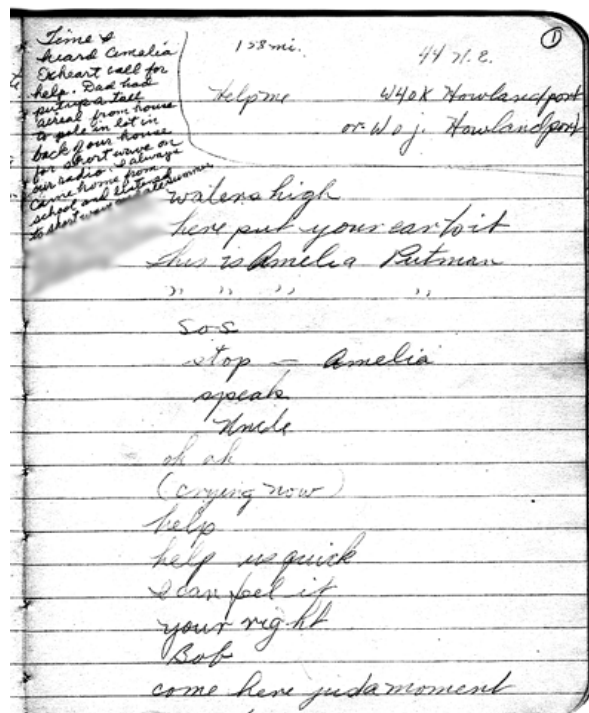 Time I
heard Amelia
Earheart call for
help. Dad had
put up a tall
aerial from house
to pole in lot in
back of our house
for short wave on
our radio. I always
came home from
school and listened
to short wave
158 mi.
44 N.E.
①
Help me
W40K Howland port
or W O J. Howland port
waters high
here put your ear to it
this is Amelia Putman
" " " "
SOS
stop — Amelia
speak
Uncle
oh oh
(crying now)
help
help us quick
I can feel it
your right
Bob
come here just a moment